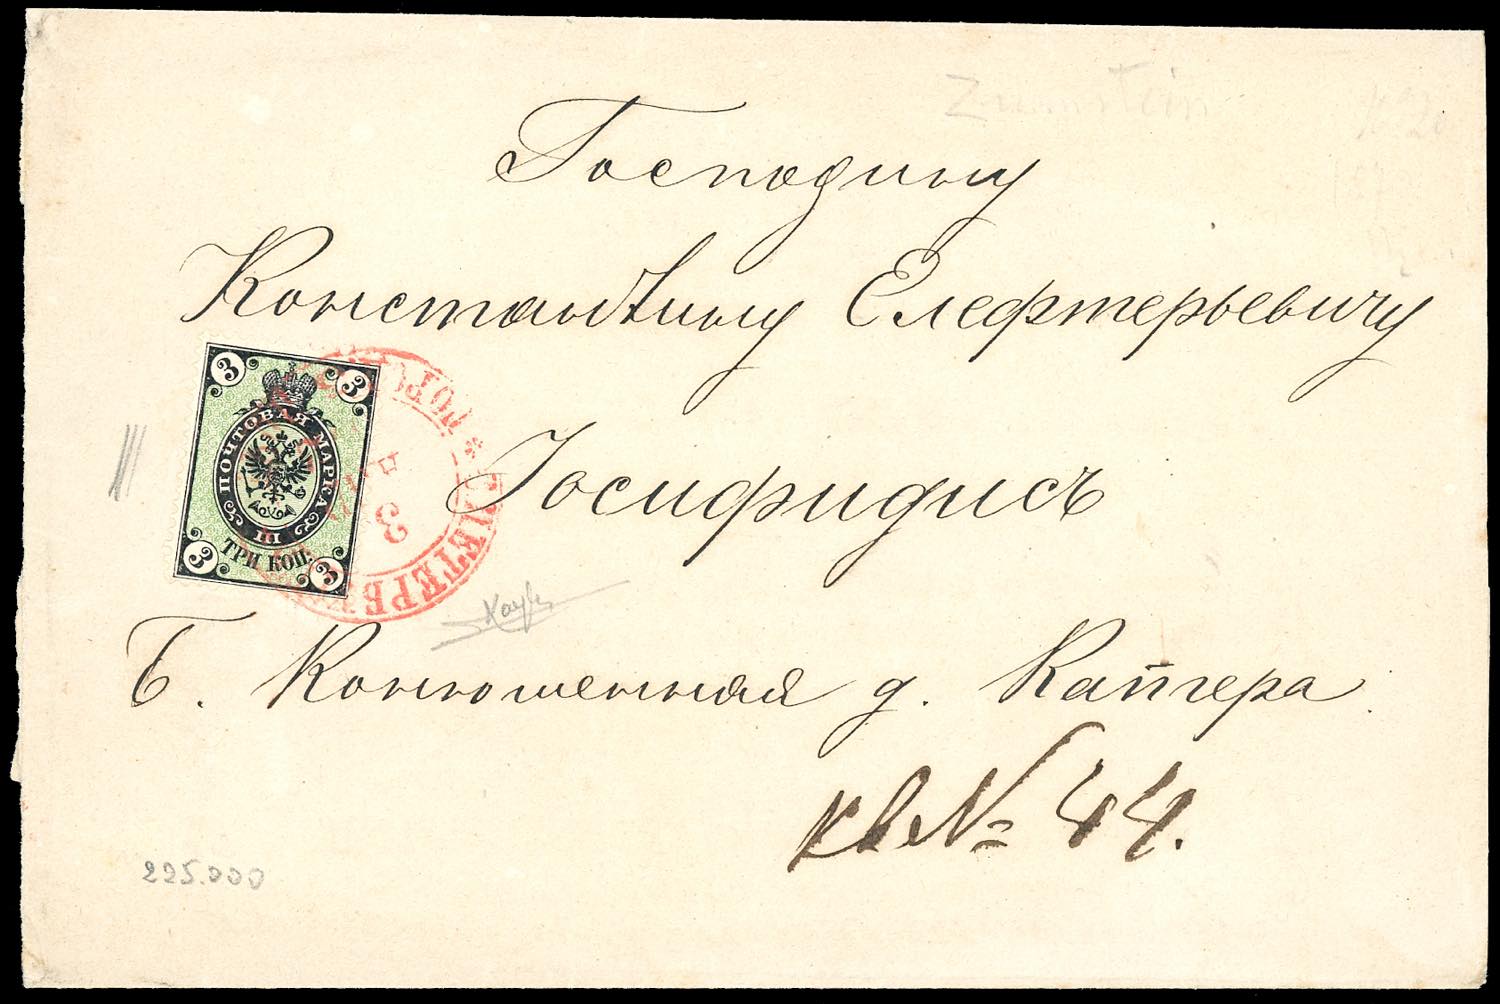 Господину
Константину Елефтерьевичу
Іосифидисъ
Б. Конюшенная д. Капгера
кв № 44.
3 3
ПОЧТОВАЯ МАРКА
ТРИ КОП.
3 3
С.ПЕТЕРБ
3
Zumstein
225.000